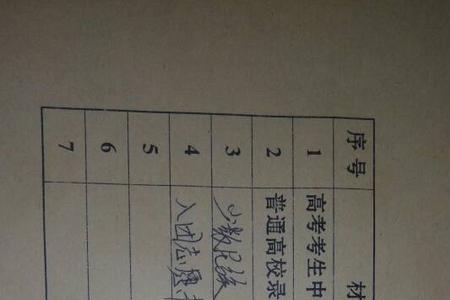 序号 材
1 高考考生中
2 普通高校录
3 少数民族
4 入团志愿
5
6
7